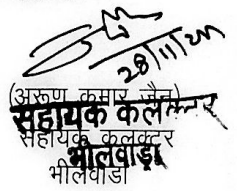 28/11/20
(अरूण कुमार जैन)
सहायक कलक्टर
सहायक कलक्टर
भीलवाड़ा
भीलवाडा